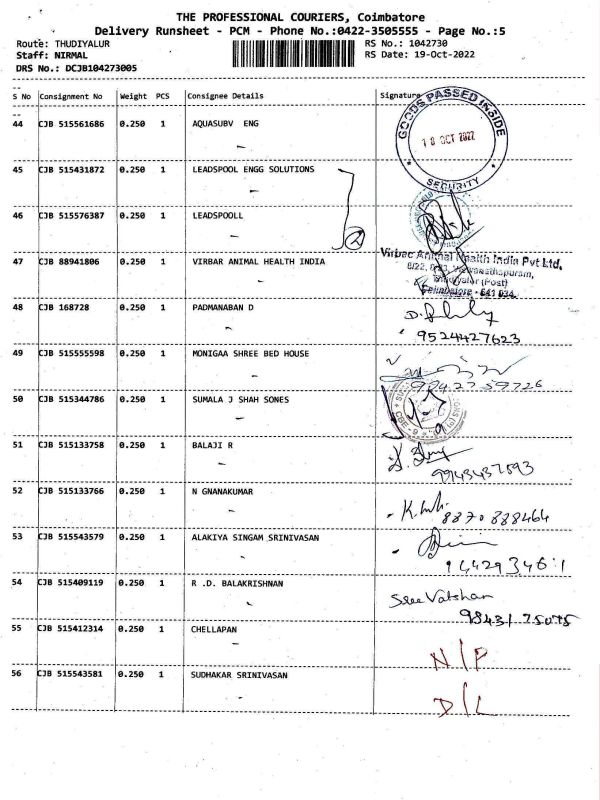 THE PROFESSIONAL COURIERS, Coimbatore
Delivery Runsheet - PCM - Phone No.:0422-3505555 - Page No.:5
Route: THUDIYALUR RS No.: 1042730
Staff: NIRMAL RS Date: 19-Oct-2022
DRS No.: DCJB104273005
S No Consignment No Weight PCS Consignee Details Signature
GOODS PASSED INSIDE
44 CJB 515561686 0.250 1 AQUASUBV ENG
18 OCT 2022
SECURITY
45 CJB 515431872 0.250 1 LEADSPOOL ENGG SOLUTIONS
46 CJB 515576387 0.250 1 LEADSPOOLL
2
47 CJB 88941806 0.250 1 VIRBAR ANIMAL HEALTH INDIA
Virbac Animal Health India Pvt Ltd.
(Post)
Coimbatore - 641 034.
48 CJB 168728 0.250 1 PADMANABAN D
9524427623
49 CJB 515555598 0.250 1 MONIGAA SHREE BED HOUSE
9942759726
50 CJB 515344786 0.250 1 SUMALA J SHAH SONES
51 CJB 515133758 0.250 1 BALAJI R
9943437593
52 CJB 515133766 0.250 1 N GNANAKUMAR
8870888464
53 CJB 515543579 0.250 1 ALAKIYA SINGAM SRINIVASAN
54 CJB 515409119 0.250 1 R .D. BALAKRISHNAN
Sree Vatshan
98431 75075
55 CJB 515412314 0.250 1 CHELLAPAN
N/P
56 CJB 515543581 0.250 1 SUDHAKAR SRINIVASAN
D/L